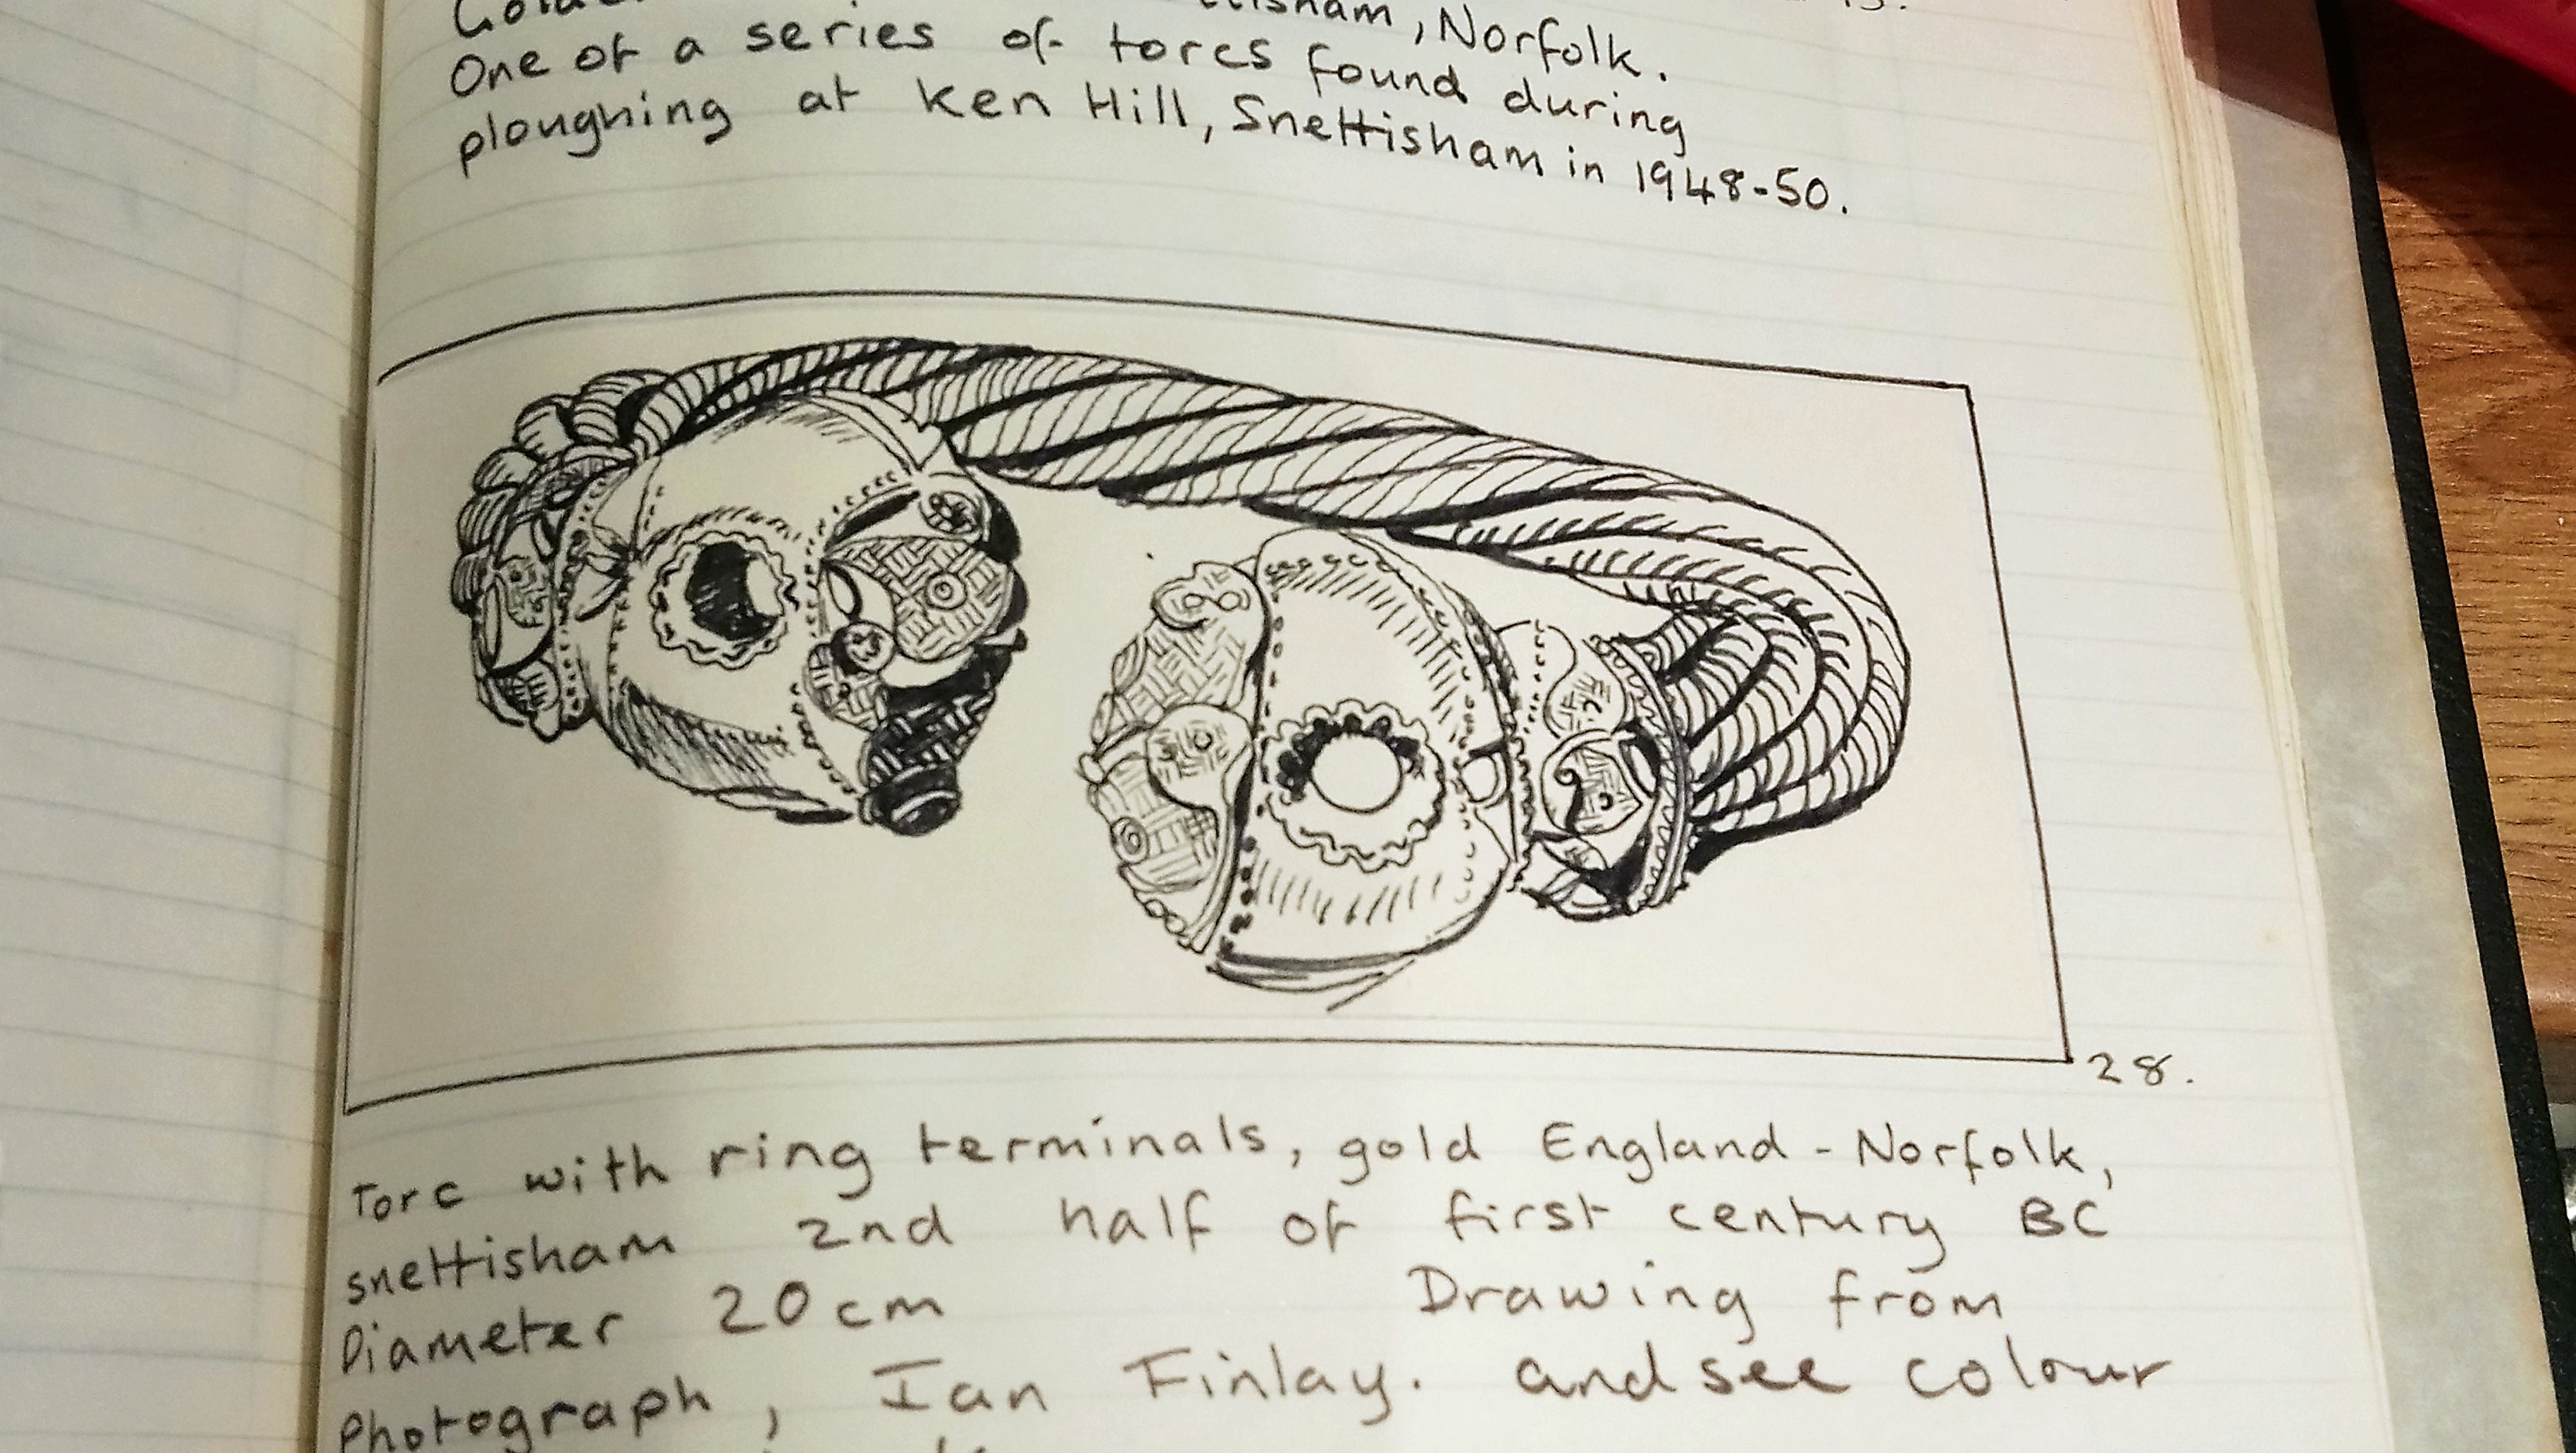 Norfolk.
One of a series of torcs found during
ploughing at Ken Hill, Snettisham in 1948-50.
28.
Torc with ring terminals, gold England - Norfolk,
snettisham 2nd half of first century BC
Diameter 20cm Drawing from
Photograph, Ian Finlay. and see colour